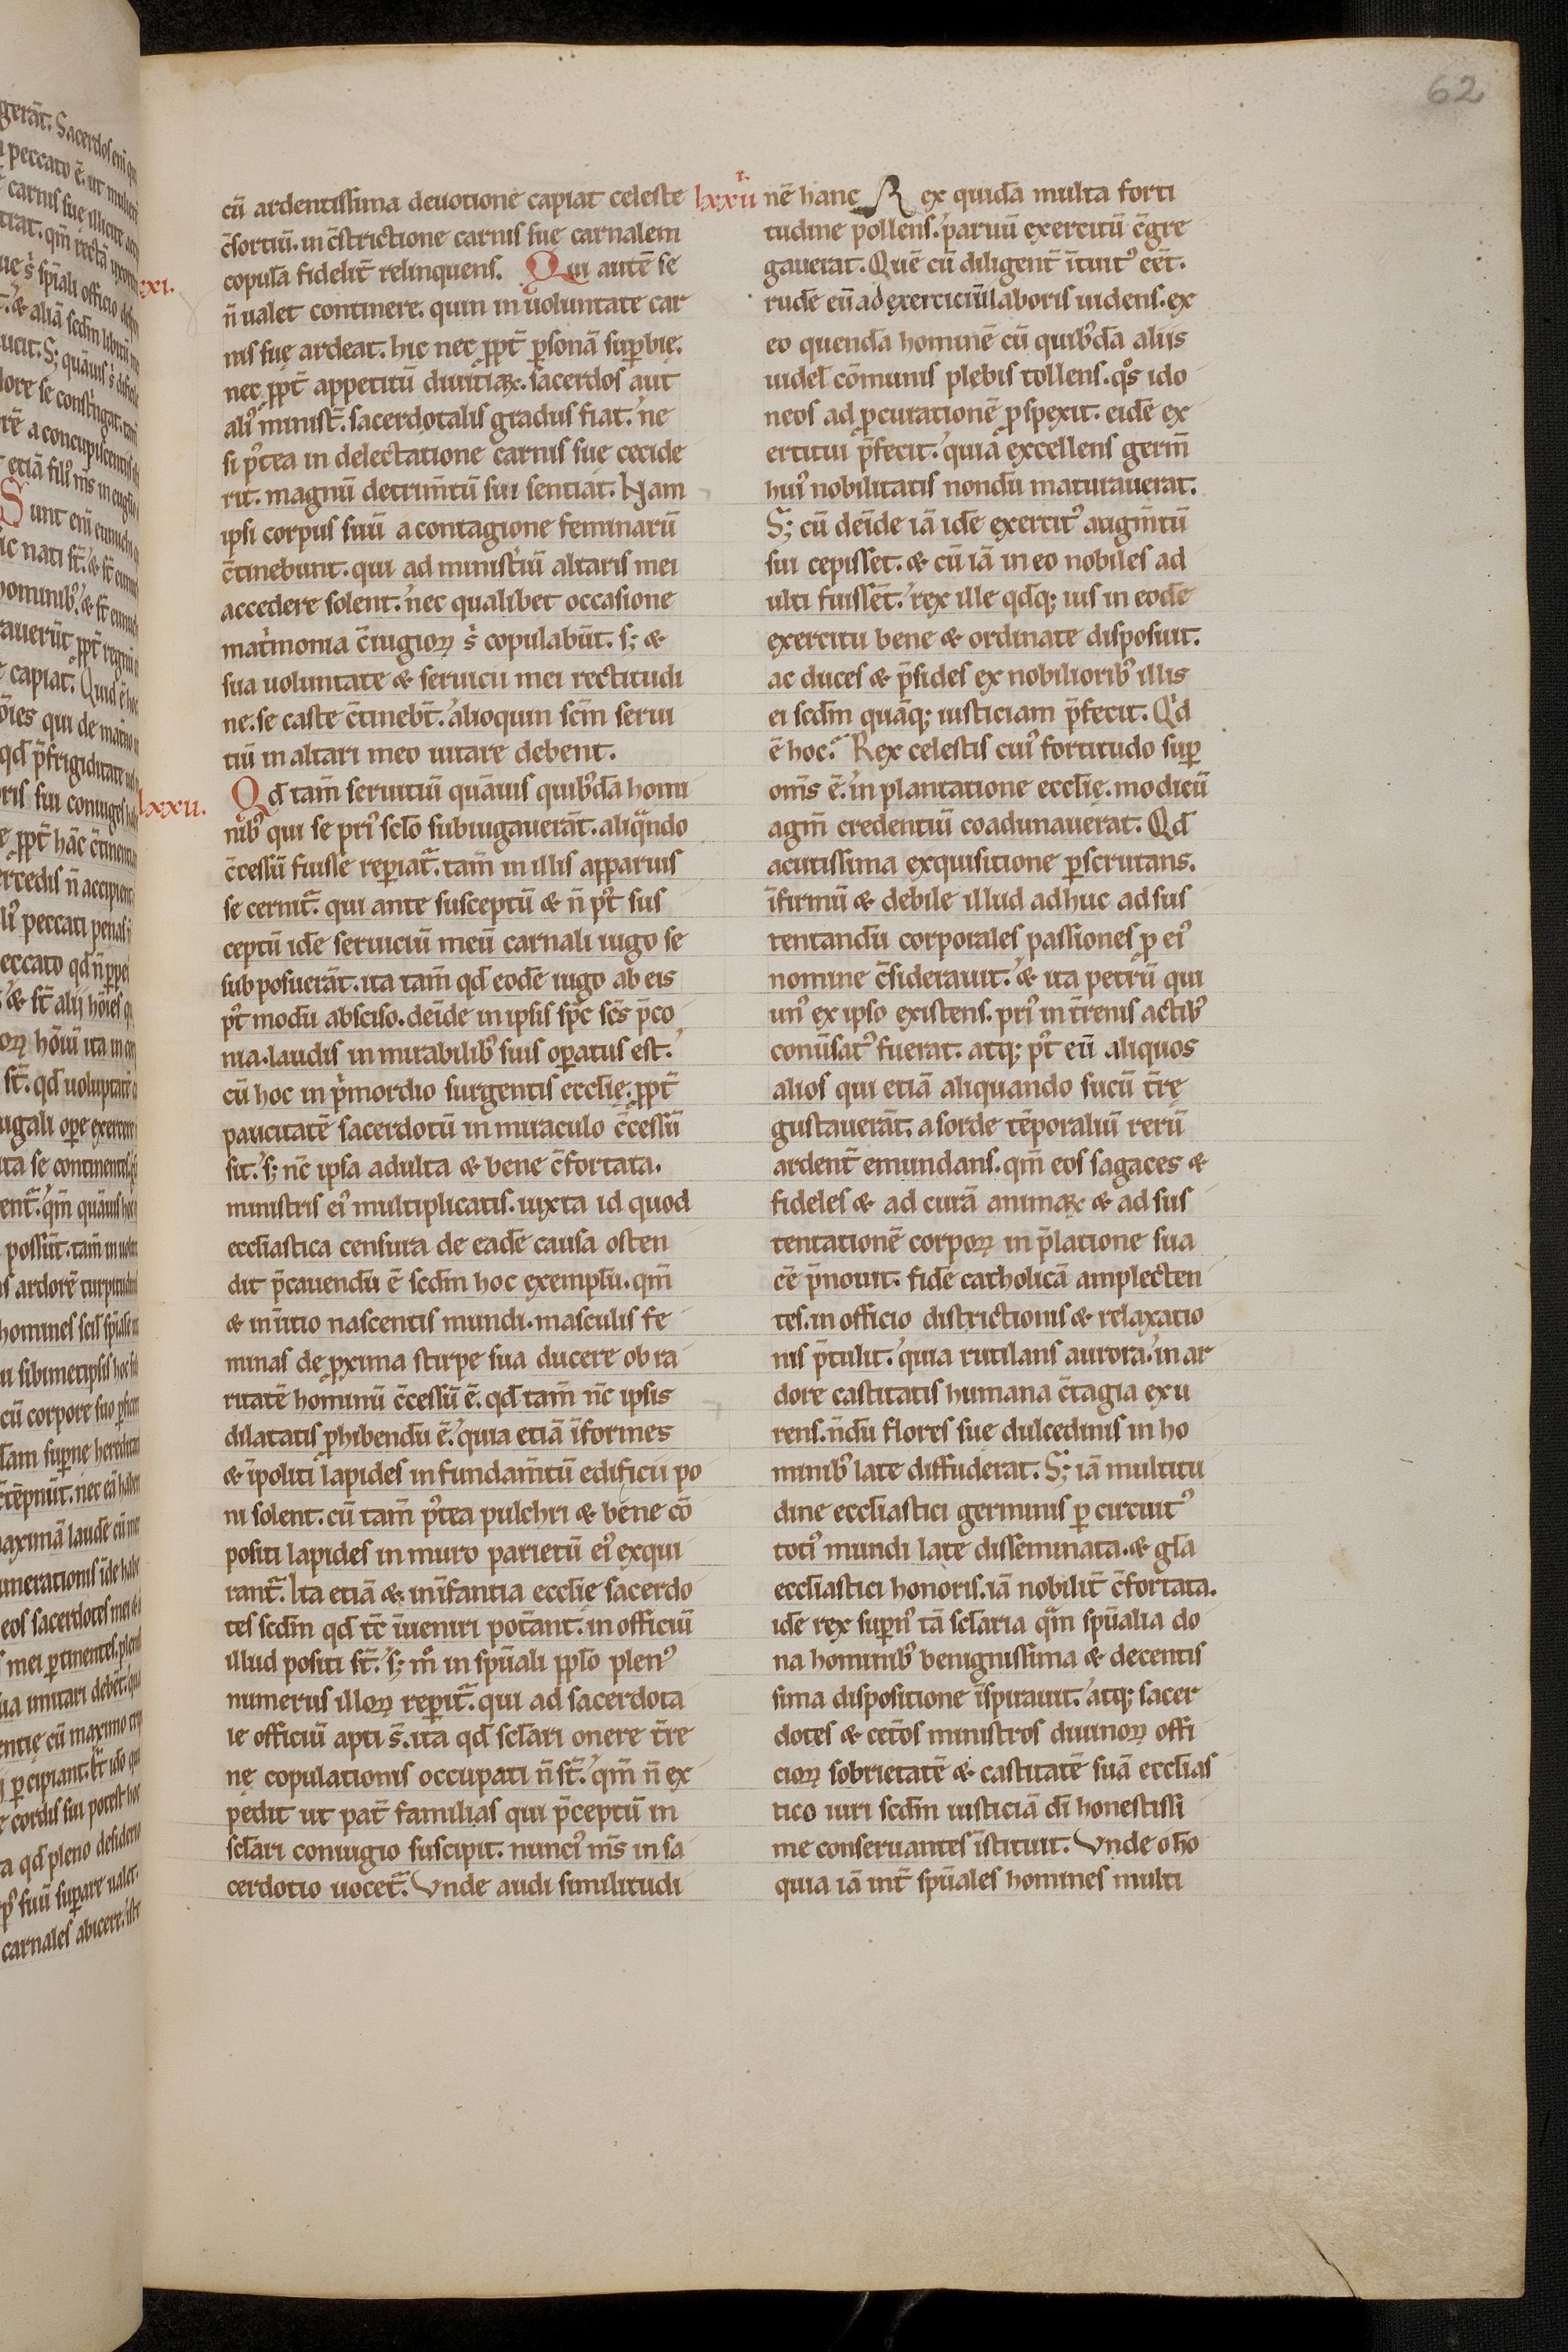 62
cū ardentissima deuotione capiat celeste
c̄sortiū. in c̄strictione carnis suę carnalem
copulā fidelit̄ relinquens. Qui autē se
xxi.
n̄ ualet continere. quin in uoluntate car
nis suę ardeat. hic nec ꝓpt̄ ꝑsonā suꝑbię.
nec ꝓpt̄ appetitū duritiaꝝ. sacerdos aut
aliꝰ minist̄. sacerdotalis gradus fiat. ne
si pꝰtea in delectatione carnis suę cecide
rit. magnū detrim̄tū sui sentiat. Nam
ipsi corpus suū a contagione feminarū
c̄tinebunt. qui ad minist̄iū altaris mei
accedere solent. nec qualibet occasione
matͥmonia c̄iugioꝝ s̄ copulabūt. s; &
sua uoluntate & seruicii mei rectitudi
ne. se caste c̄tinebt̄. alioquin scm̄ serui
tiū in altari meo uitare debent.
lxxii.
Qd̄ tam̄ seruitiū quāuis quibꝰdā homi
nibꝰ qui se priꝰ sclō subiugauerāt. aliqͣndo
c̄cessū fuisse reꝑiatͬ. tam̄ in illis apparuis
se cernitͬ. qui ante susceptū & n̄ pꝰt sus
ceptū idē seruiciū meū carnali iugo se
sub posuerāt. ita tam̄ qd̄ eodē iugo ab eis
pꝰt modū absciso. deīde in ipsis spc̄ scs̄ p̄co
nia. laudis in mirabilibꝰ suis oꝑatus est.
cū hoc in pͥmordio surgentis eccl̄ię. ꝓpt̄
paucitatē sacerdotū in miraculo c̄cessū
sit. s; nc̄ ipsa adulta & bene c̄fortata.
ministris eiꝰ multiplicatis. iuxta id quod
eccl̄iastica censura de eadē causa osten
dit p̄cauendū ē scdm̄ hoc exemplū. qm̄
& in īitio nascentis mundi. masculis fe
minas de ꝓxima stirpe sua ducere ob ra
ritatē hominū c̄cessū ē. qd̄ tam̄ nc̄ ipsis
dilatatis ꝓhibendū ē. quia etiā īformes
& īpoliti lapides in fundam̄tū edificii po
ni solent. cū tam̄ pꝰtea pulchri & bene cō
positi lapides in muro parietū eiꝰ exqui
rantͬ. Ita etiā & in īfantia eccl̄ię sacerdo
tes scdm̄ qd̄ tc̄ īueniri pot̄ant. in officiū
illud positi st̄. s; mͦ in spūali ppl̄o plenꝰ
numerus illoꝝ reꝑitͬ. qui ad sacerdota
le officiū apti s̄. ita qd̄ sclari onere t̄re
nę copulationis occupati n̄ st̄. qm̄ n̄ ex
pedit ut pat̄ familias qui p̄ceptū in
sclari coniugio suscipit. nunciꝰ ms̄ in sa
cerdotio uocetͬ. Vnde audi similitudi
lxxiii.
nē hanc Rex quidā multa forti
tudine pollens. paruū exercitū c̄gre
gauerat. Quē cū diligent̄ ītuitꝰ eēt.
rudē eū ad exerciciū laboris uidens. ex
eo quendā hominē cū quibꝰdā aliis
uidel̄ cōmunis plebis tollens. qͦs ido
neos ad ꝓcurationē ꝓspexit. eidē ex
ertitui p̄fecit. quia excellens germ̄
huiꝰ nobilitatis nondū maturauerat.
S; cū deīde iā idē exercitꝰ augm̄tū
sui cepisset. & cū iā in eo nobiles ad
ulti fuissēt. rex ille qd̄q; ius in eodē
exercitu bene & ordinate disposuit.
ac duces & p̄sides ex nobilioribꝰ illis
ei scdm̄ quāq; iusticiam p̄fecit. Qͥd
ē hoc. Rex celestis cuiꝰ fortitudo suꝑ
om̄s ē. in plantatione eccl̄ię. modicū
agm̄ credentiū coadunauerat. Qd̄
acutissima exquisitione ꝑscrutans.
īfirmū & debile illud adhuc ad sus
tentandū corporales passiones ꝓ eiꝰ
nomine c̄siderauit. & ita petrū qui
unꝰ ex ipso existens. priꝰ in t̄renis actibꝰ
conūsatꝰ fuerat. atq; pꝰt eū aliquos
alios qui etiā aliquando sucū t̄rę
gustauerāt. a sorde tēporaliū rerū
ardent̄ emundans. qm̄ eos sagaces &
fideles & ad curā animaꝝ & ad sus
tentationē corpoꝝ in p̄latione sua
eē p̄nouit. fidē catholicā amplecten
tes. in officio districtionis & relaxatio
nis p̄tulit. quia rutilans aurora. in ar
dore castitatis humana c̄tagia exu
rens. n̄dū flores suę dulcedinis in ho
minibꝰ late diffuderat. S; iā multitu
dine eccl̄iastici germinis ꝑ circuitꝰ
totiꝰ mundi late disseminata. & gl̄a
eccl̄iastici honoris. iā nobilit̄ c̄fortata.
idē rex suꝑnꝰ tā scl̄aria qͣm spūalia do
na hominibꝰ benignissima & decentis
sima dispositione īspirauit. atq; sacer
dotes & cet̄os ministros diuinoꝝ offi
cioꝝ sobrietatē & castitatē suā eccl̄ias
tico iuri scdm̄ iusticiā dī honestissi
me conseruantes īstituit. Vnde o hō
quia iā int̄ spūales homines multi